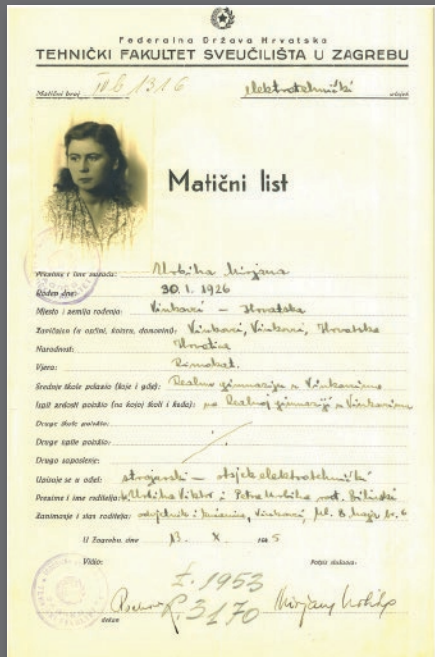 Federalna Država Hrvatska
TEHNIČKI FAKULTET SVEUČILIŠTA U ZAGREBU
Matični broj IVb 1316 elektrotehnički odsjek
Matični list
Prezime i ime Urbiha Mirjana
Rođen dne: 30. I. 1926
Mjesto i zemlja rođenja: Vinkovci – Hrvatska
Zavičajan (u općini, kotaru, ): Vinkovci, Vinkovci, Hrvatska
Narodnost: Hrvatica
Vjera: Rimokat.
Srednje škole polazio (koje i gdje): Realnu gimnaziju u Vinkovcima
Ispit zrelosti položio (na kojoj školi i kada): na Realnoj gimnaziji u Vinkovcima
Druge škole polazio:
Druge ispite položio:
Drugo zaposlenje:
Upisuje se u odjel: strojarski – odsjek elektrotehnički
Prezime i ime roditelja: Urbiha Viktor i Petra Urbiha rođ. Bilinski
Zanimanje i stan roditelja: odvjetnik i kućanica, Vinkovci, Ul. 8. br. 6
U Zagrebu, dne 13. X. 1945
Vidio: Potpis studenta:
Ž. 1953
R. 3170
Mirjana Urbiha
dekan